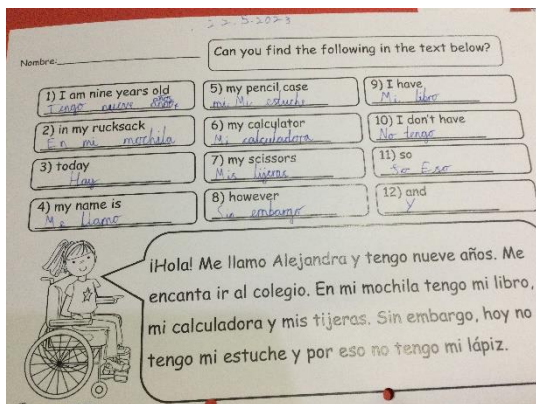 2.5.2023
Nombre:
Can you find the following in the text below?
1) I am nine years old
Tengo nueve años
2) in my rucksack
En mi mochila
3) today
Hay
4) my name is
Me llamo
5) my pencil case
mi Mi estuche
6) my calculator
Mi calculadora
7) my scissors
Mis tijeras
8) however
Sin embargo
9) I have
Mi libro
10) I don't have
No tengo
11) so
Eso
12) and
Y
¡Hola! Me llamo Alejandra y tengo nueve años. Me
encanta ir al colegio. En mi mochila tengo mi libro,
mi calculadora y mis tijeras. Sin embargo, hoy no
tengo mi estuche y por eso no tengo mi lápiz.